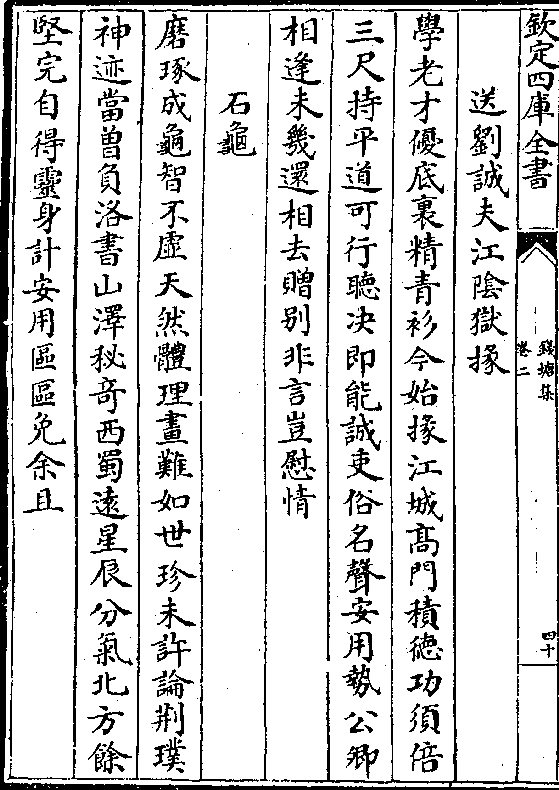 欽定四庫全書
錢塘集
卷二
四十
送劉誠夫江陰獄掾
學老才優底裏精青衫今始掾江城髙門積徳功須倍
三尺持平道可行聽決即能誠吏俗名聲安用勢公卿
相逢未幾還相去贈别非言豈慰情
石龜
磨琢成龜智不虛天然體理畫難如世珍未許論荆璞
神迹當曽負洛書山澤秘竒西蜀逺星辰分氣北方餘
堅完自得靈身計安用區區免余且